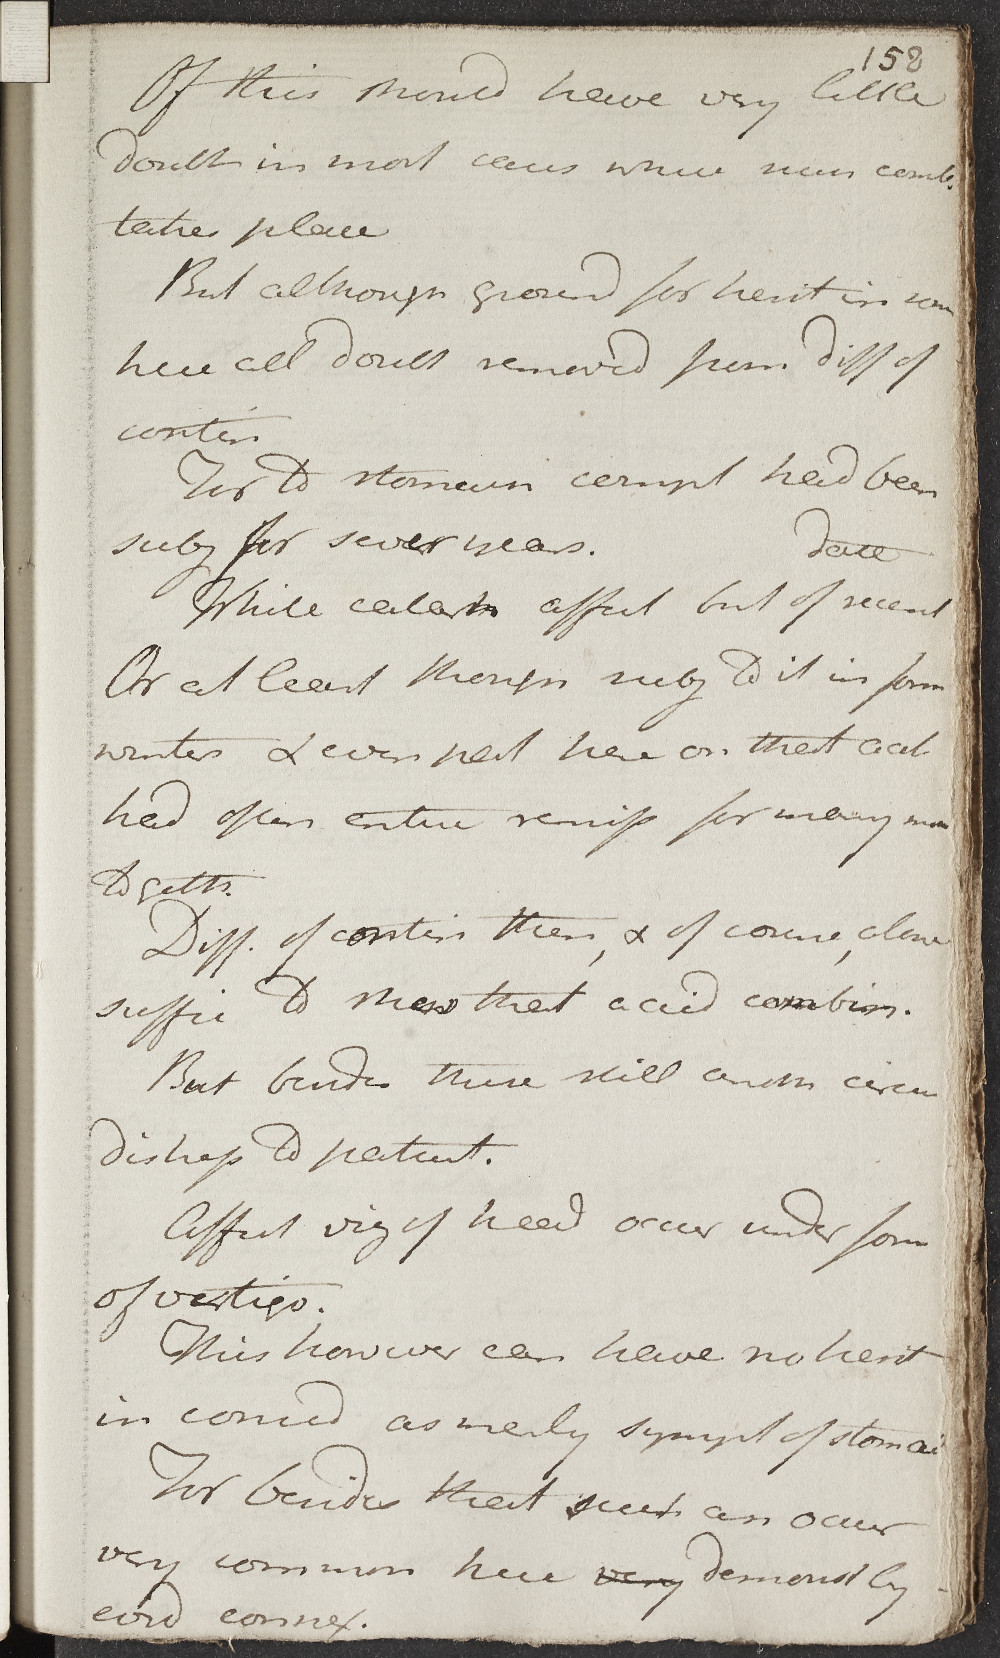 158
Of this should have very little
doubt in most cases where such comb.
takes place
But although ground for hesit in som
here all doubt removed from diff of
contin
For to stomach compl had been
subj for sever years. date
While catarrh affect but of recent
Or at least though subj to it in form
winters & even pect here on that acct
had often entire remiss for many mon
togeth.
Diff. of contin then, & of course, alone
suffic to show that accid combin.
But besides these still anoth circu
dishap to patient.
Affect viz of head occur under form
of vertigo.
This however can have no hesit
in consid as merely sympt of stomac
For besides that such an occur
very common here very demonst by
evid connex.